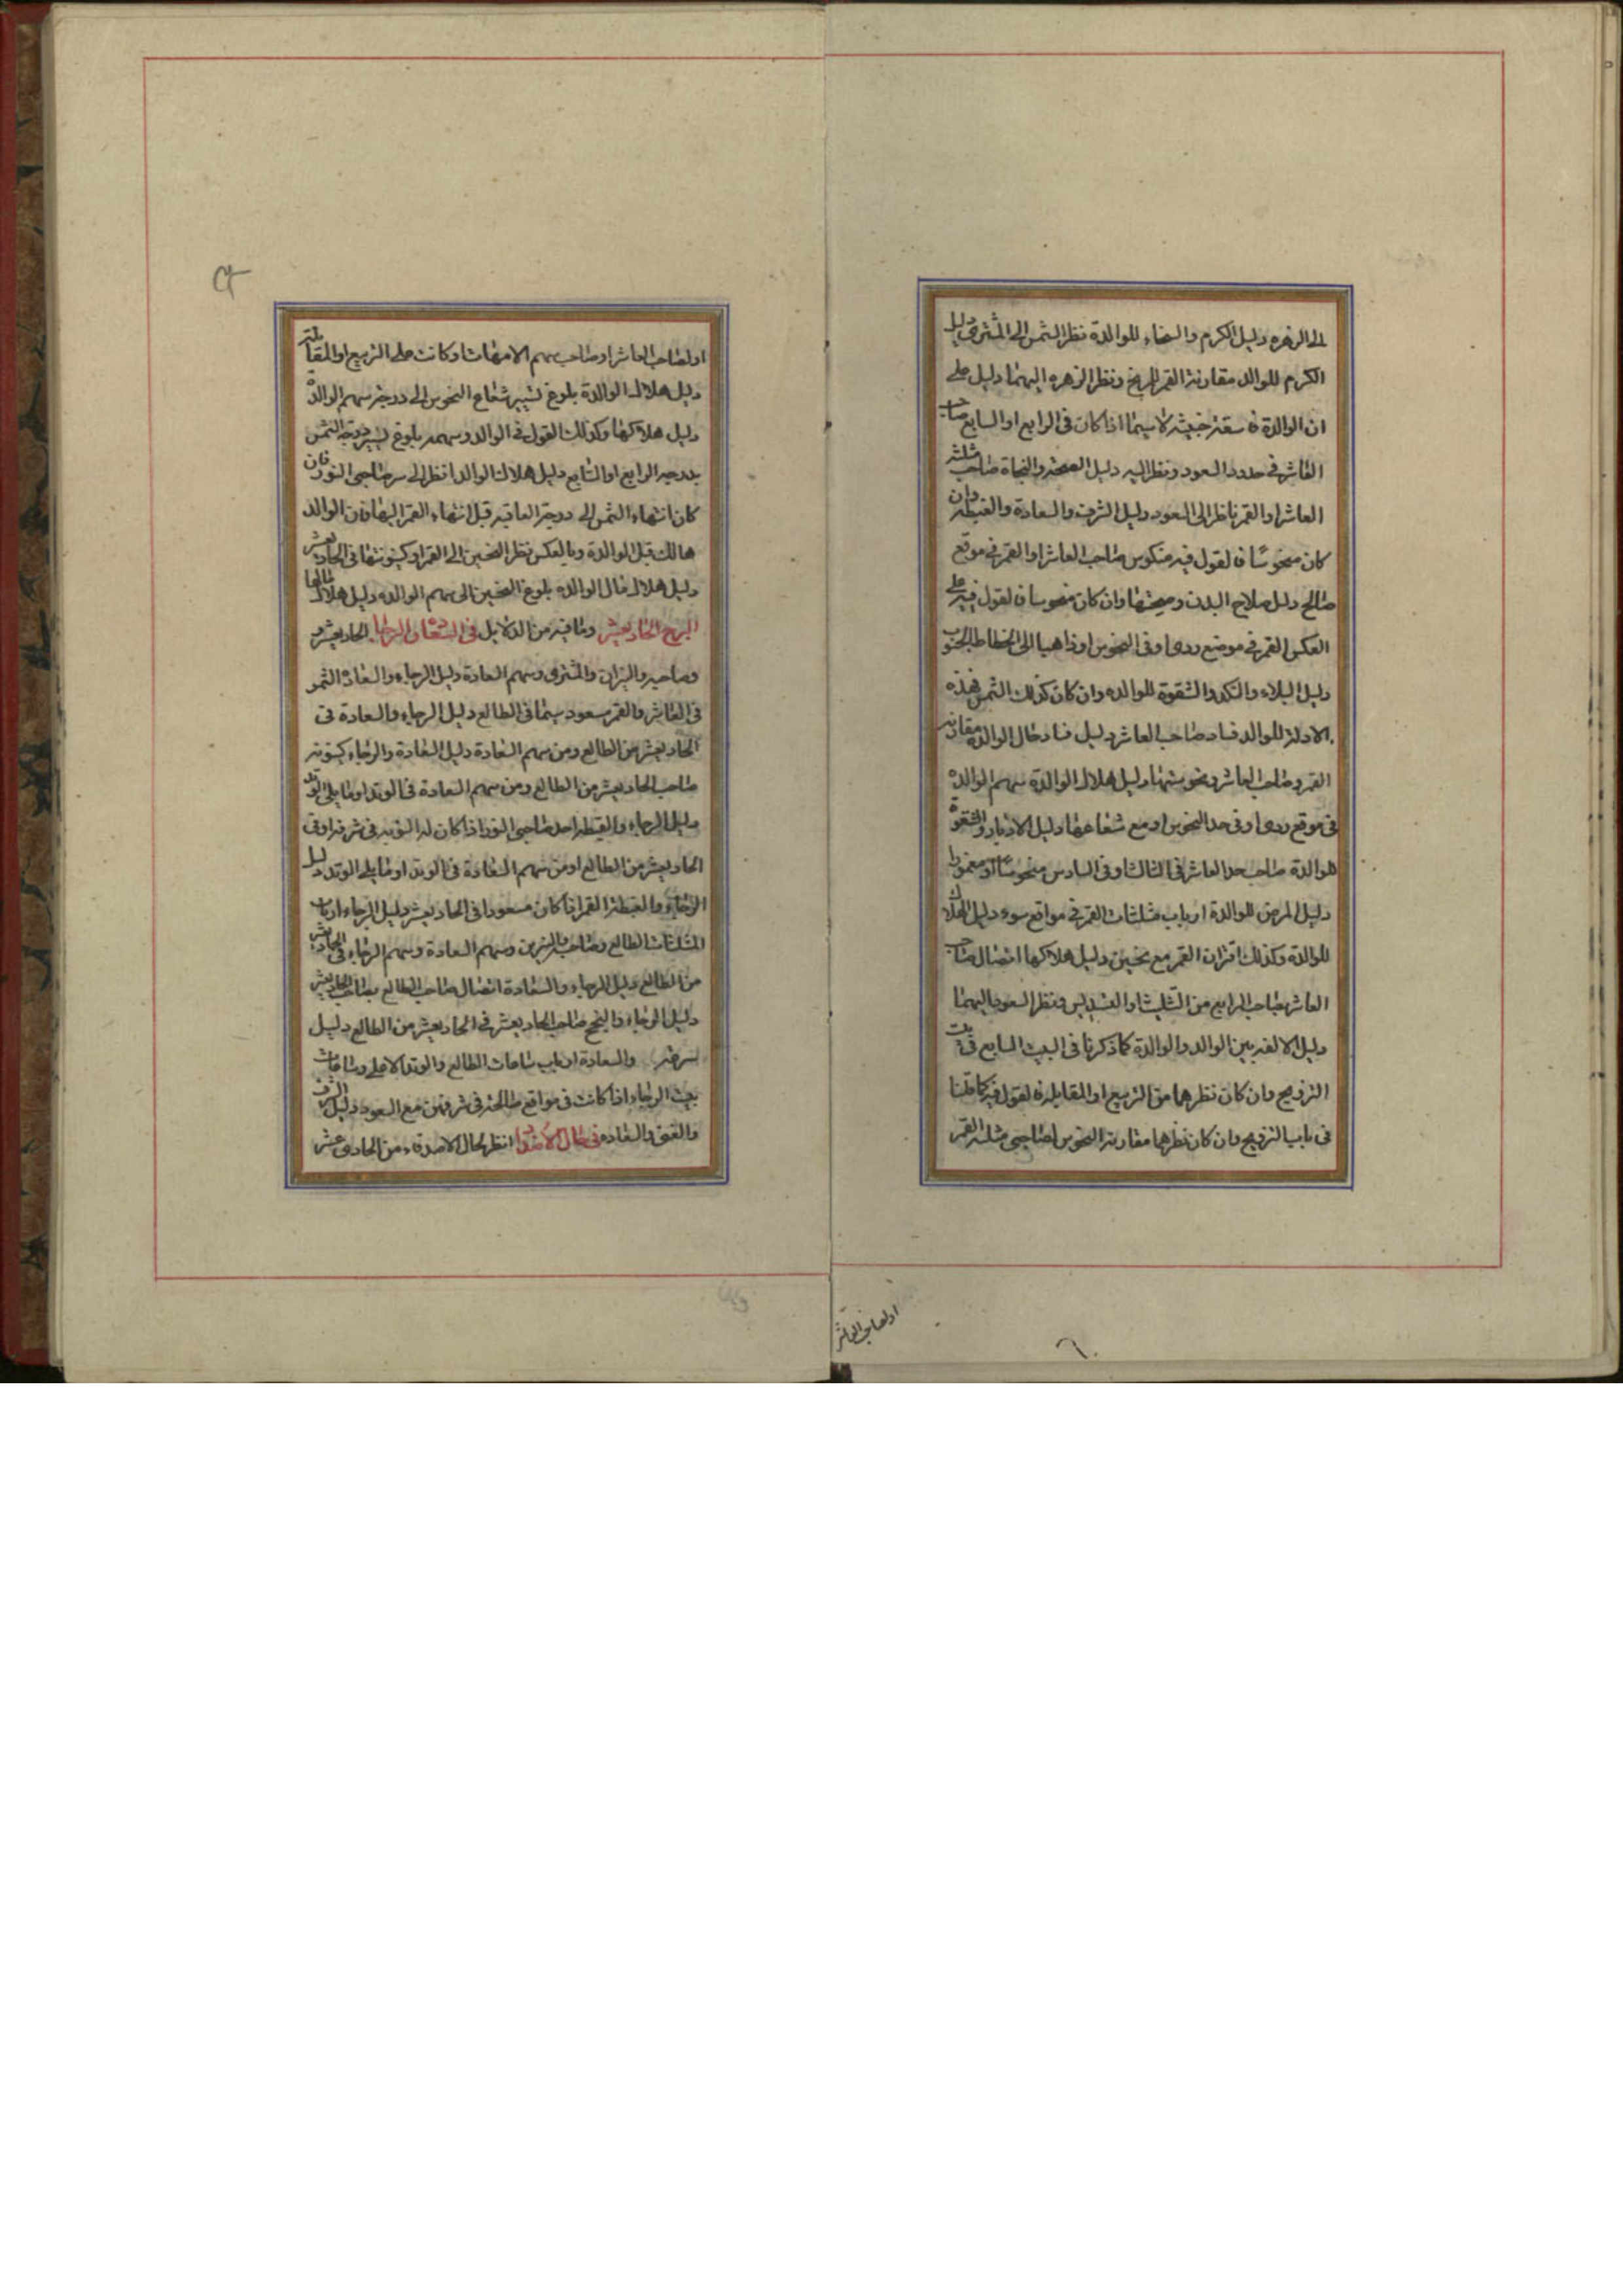 الى الزهره دليل الكرم والسخاء للوالدة نظر الشمس الى المشترى دليل
الكرم للوالد مقارنة القمر المريخ ونظر الزهره اليهما دليل على
ان الوالدة فاسقة خبيثة لاسيما اذا كان فى الرابع او السابع صاحب
العاشر فى حدود السعود ونظر اليه دليل الصحة والنجاة صاحب مثلثة
العاشر او القمر ناظر الى السعود دليل الشرف والسعادة والغبطة وان
كان منحوسًا فالقول فيه منكوس صاحب العاشر او القمر فى موقع
صالح دليل صلاح البدن وصحتها وان كان منحوسا فالقول فيه على
العكس القمر فى موضع ردى او فى النحوس او ذاهبا الى انحطاط الجنوب
دليل البلاء والنكد والشقوة للوالده وان كان كذلك الشمس فهذه
الادلة للوالد فساد صاحب العاشر دليل فساد حال الوالدة مقارنة
القمر وصاحب العاشر ونحوستهما دليل هلاك الوالدة سهم الوالده
فى موقع ردى او فى حد النحوس او مع شعاعها دليل الادبار والشقوة
للوالدة صاحب حد العاشر فى الثالث او فى السادس منحوسًا او مغمورا
دليل المرض للوالدة ارباب مثلثات القمر فى مواقع سوء دليل الهلاك
للوالدة وكذلك اقتران القمر مع نحسين دليل هلاكها اتصال صاحب
العاشر بصاحب الرابع من التثليث او التسديس ونظر السعود اليهما
دليل الالفة بين الوالد والوالدة كما ذكرنا فى البيت السابع فى بيت
التزويج وان كان نظرهما من التربيع او المقابلة فالقول فيه كما قلنا
فى باب التزويج وان كان نظرهما مقارنة النحوس لصاحبى مثلثة القمر
او لصاحب العاشر
او لصاحب العاشر او صاحب سهم الامهات او كانت على التربيع او المقابلة
دليل هلاك الوالدة بلوغ تسيير شعاع النحوس الى درجة سهم الوالدة
دليل هلاكها وكذلك القول فى الوالد وسهمه بلوغ تسيير درجة الشمس
بدرجة الرابع او السابع دليل هلاك الوالد انظر الى صاحبى النور فان
كان انتهاء الشمس الى درجة العاقبه قبل انتهاء القمر اليها فان الوالد
هالك قبل الوالدة وبالعكس نظر النحسين الى القمر او كينونتها فى الحاديعشر
دليل هلاك مال الوالده بلوغ النحسين الى سهم الوالده دليل هلاك مالها
البرج الحاديعشر وما فيه من الدلايل فى السعادة والرجا الحاديعشر
وصاحبه والنيران والمشترى وسهم السعادة دليل الرجاء والسعادة القمر
فى العاشر والقمر مسعود سيما فى الطالع دليل الرجاء والسعادة فى
الحاديعشر من الطالع ومن سهم السعادة دليل السعادة والرجاء كينونة
صاحب الحاديعشر من الطالع ومن سهم السعادة فى الوتد او ما يلى الوتد
دليل الرجاء والغبطة احد صاحبى النور اذا كان له النوبه فى شرفه او فى
الحاديعشر من الطالع او من سهم السعادة فى الوتد او ما يلى الوتد دليل
الرجاء والغبطة القمر اذا كان مسعودا فى الحاديعشر دليل الرجاء ارباب
المثلثات الطالع وصاحب النيرين وسهم السعادة وسهم الرجاء فى الحاديعشر
من الطالع دليل الرجاء والسعادة اتصال صاحب الطالع بصاحب الحاديعشر
دليل الرجاء والنجح صاحب الحاديعشر فى الحاديعشر من الطالع دليل
والسعادة ارباب ساعات الطالع والوتد الاعلى وساعات
بيت الرجاء اذا كانت فى مواقع صالحة فى شرفهن مع السعود دليل الشرف
والغنى والسعاده فى حال الاصدقا انظر لحال الاصدقاء من الحادى عشر